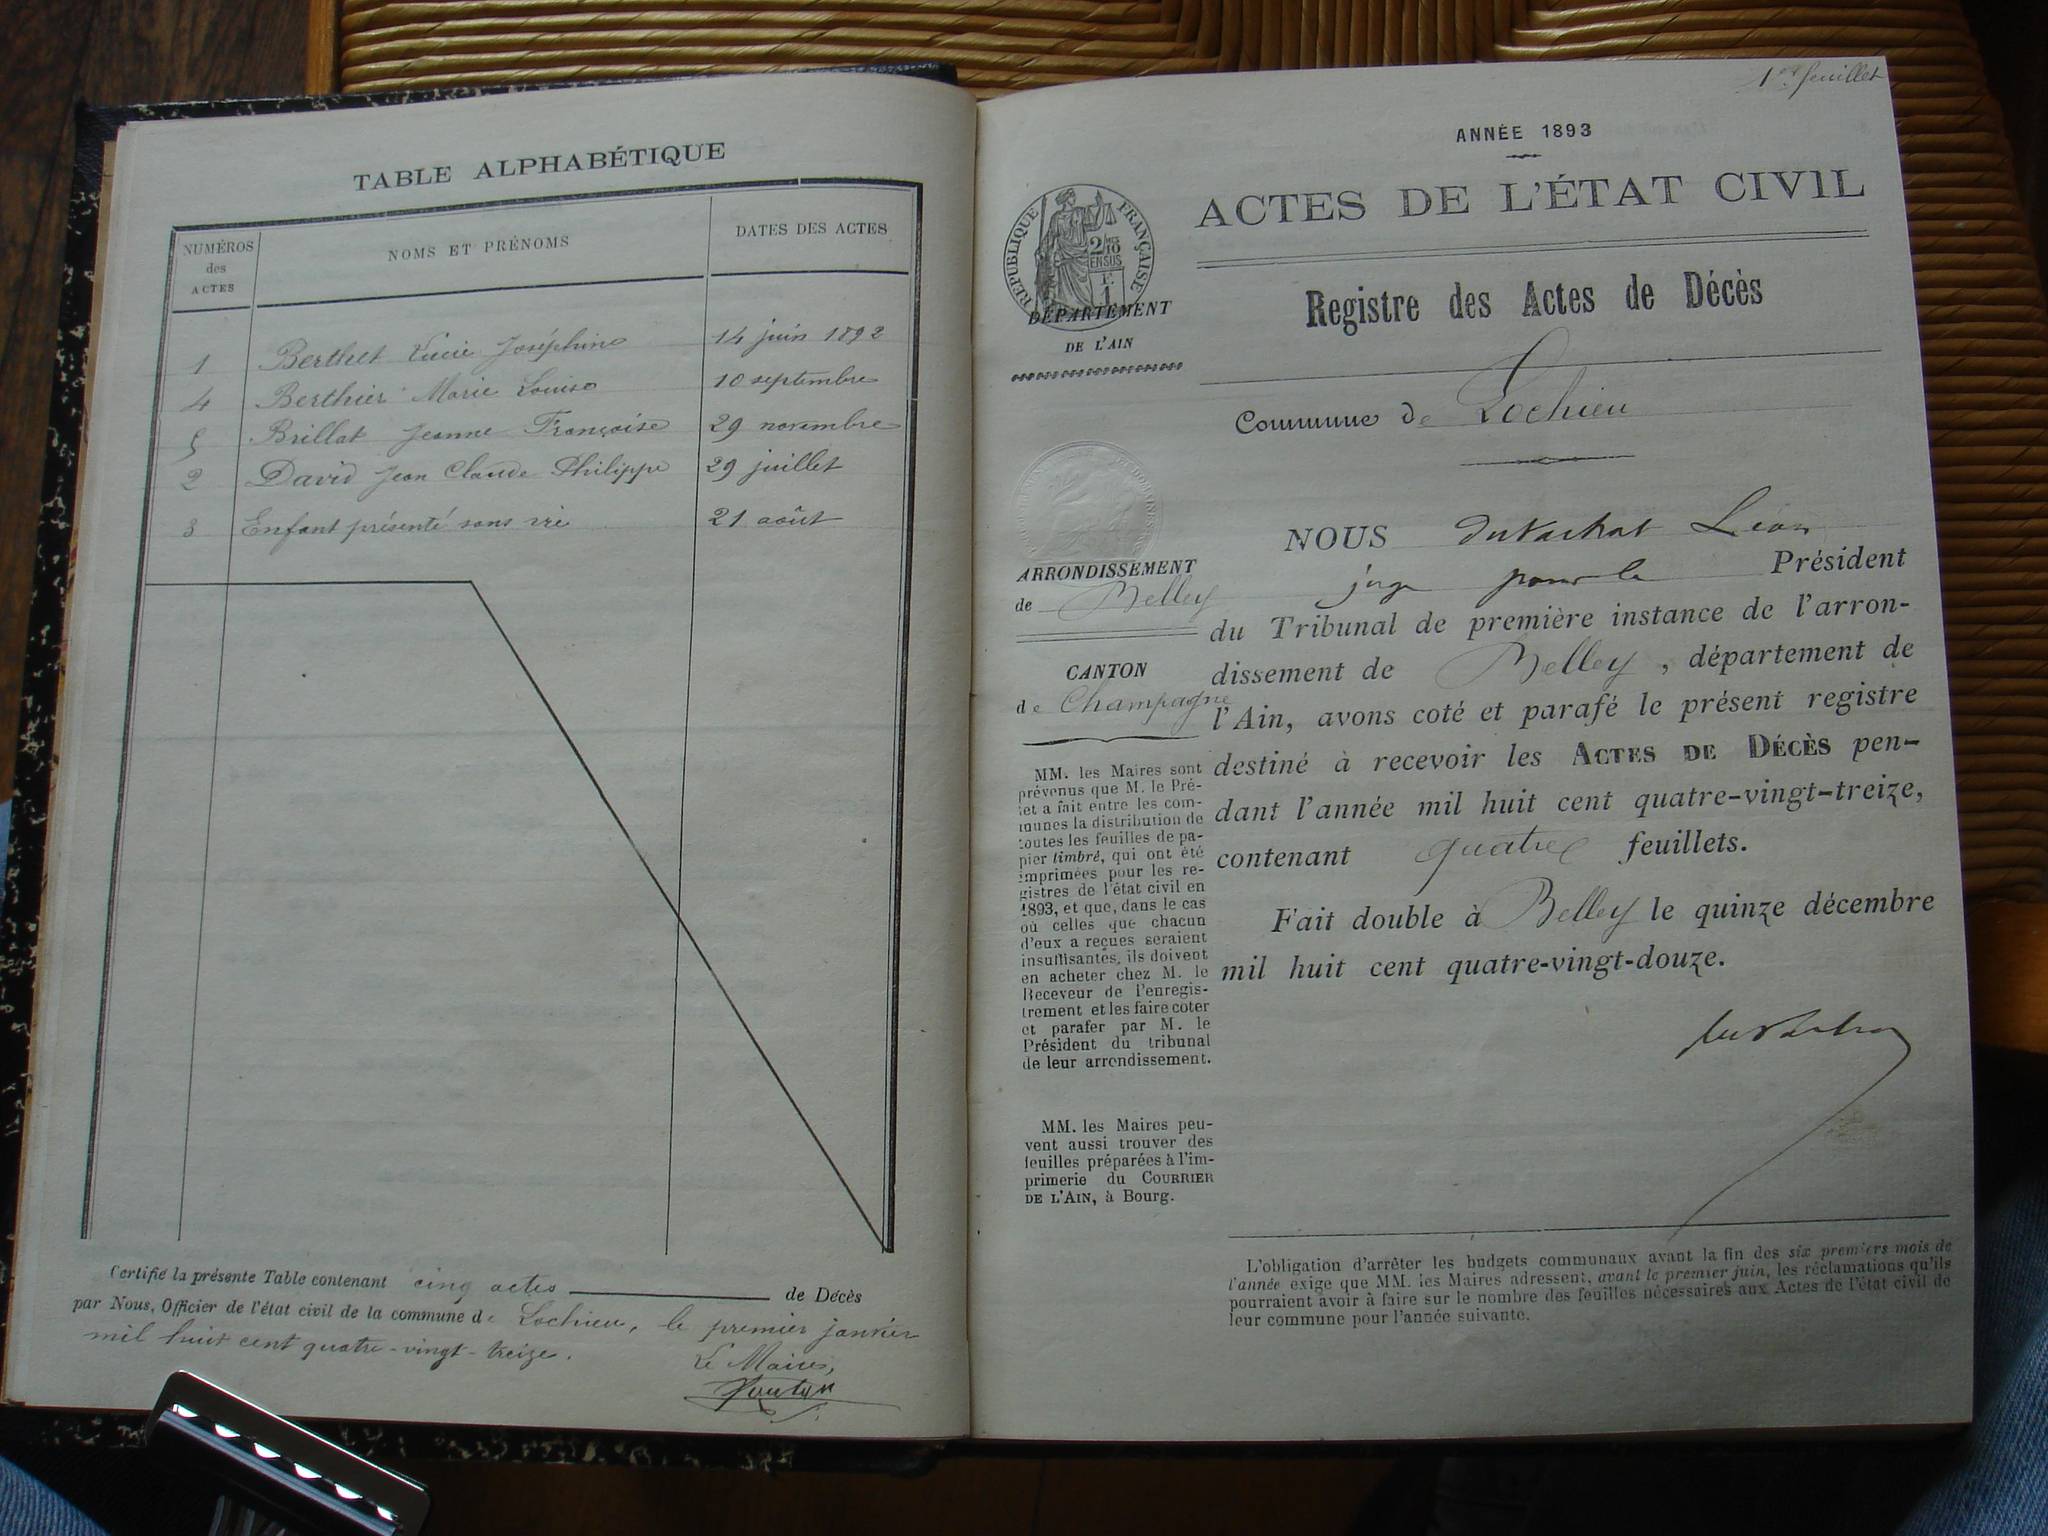 TABLE ALPHABÉTIQUE
NUMÉROS des ACTES
NOMS ET PRÉNOMS
DATES DES ACTES
1 Berthet Lucie Joséphine 14 juin 1892
4 Berthier Marie Louise 10 septembre
5 Brillat Jeanne Françoise 29 novembre
2 David Jean Claude Philippe 29 juillet
3 Enfant présenté sans vie 21 août
Certifié la présente Table contenant cinq actes de Décès
par Nous, Officier de l'état civil de la commune de Lochieu, le premier janvier
mil huit cent quatre-vingt-treize.
Le Maire,
1er feuillet
ANNÉE 1893
ACTES DE L'ÉTAT CIVIL
RÉPUBLIQUE FRANÇAISE
2/10 EN SUS
F. 1
DÉPARTEMENT
DE L'AIN
Registre des Actes de Décès
Commune de Lochieu
ARRONDISSEMENT
de Belley
CANTON
de Champagne
MM. les Maires sont
prévenus que M. le Pré-
fet a fait entre les com-
munes la distribution de
toutes les feuilles de pa-
pier timbré, qui ont été
imprimées pour les re-
gistres de l'état civil en
1893, et que, dans le cas
où celles que chacun
d'eux a reçues seraient
insuffisantes, ils doivent
en acheter chez M. le
Receveur de l'enregis-
trement et les faire coter
et parafer par M. le
Président du tribunal
de leur arrondissement.
MM. les Maires peu-
vent aussi trouver des
feuilles préparées à l'im-
primerie du COURRIER
DE L'AIN, à Bourg.
NOUS Léon
juge pour le Président
du Tribunal de première instance de l'arron-
dissement de Belley, département de
l'Ain, avons coté et parafé le présent registre
destiné à recevoir les ACTES DE DÉCÈS pen-
dant l'année mil huit cent quatre-vingt-treize,
contenant quatre feuillets.
Fait double à Belley le quinze décembre
mil huit cent quatre-vingt-douze.
L'obligation d'arrêter les budgets communaux avant la fin des six premiers mois de
l'année exige que MM. les Maires adressent, avant le premier juin, les réclamations qu'ils
pourraient avoir à faire sur le nombre des feuilles nécessaires aux Actes de l'état civil de
leur commune pour l'année suivante.